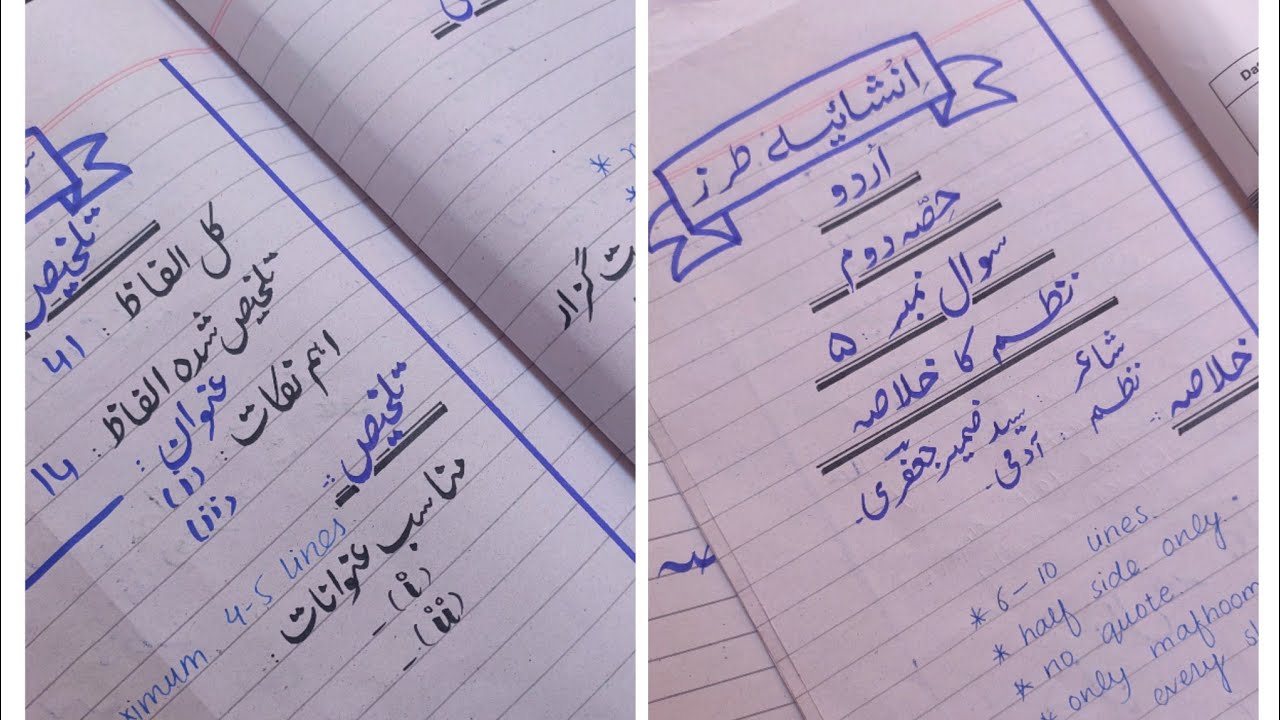 تلخیص
کل الفاظ : 41
تلخیص شدہ الفاظ : 14
عنوان :
اہم نکات : (i)
(ii)
تلخیص :
4-5 lines.
مناسب عنوانات :
- (i)
- (ii)
ximum
ت گزار
اِنشائیہ طرز
اُردو
حِصّہ دوم
سوال نمبر ۵
نظم کا خلاصہ
شاعر : سید ضمیر جعفری۔
نظم : آدمی۔
خلاصہ :
* 6-10 lines.
* half side only.
* no quote.
* only mafhoom
every s
Da